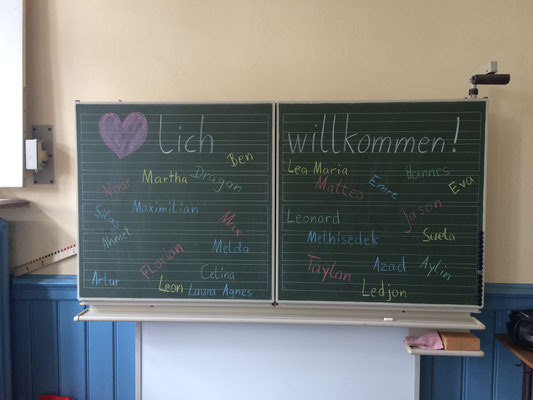 lich willkommen!
Ben
Martha Dragan
Maximilian
Silas
Max
Ahmet
Melda
Florian
Celina
Artur
Leon Laura Agnes
Lea Maria
Hannes
Matteo Emre Eva
Leonard
Jason
Methisedek
Suela
Taylan Azad Aylin
Ledjon